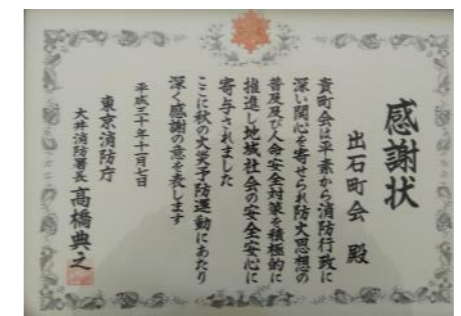 感謝状
出石町会 殿
貴町会は平素から消防行政に
深い関心を寄せられ防火思想の
普及及び人命安全対策を積極的に
推進し地域社会の安全安心に
寄与されました
ここに秋の火災予防運動にあたり
深く感謝の意を表します
平成三十年十一月七日
東京消防庁
大井消防署長 高橋典之